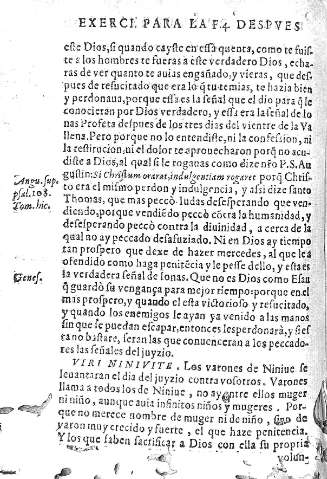 EXERCI. PARA LA F. 4 DESPVES
este Dios, si quando cayste en essa quenta, como te fuis-
te a los hombres te fueras a este verdadero Dios, echa-
ras de ver quanto te auias engañado, y vieras, que des-
pues de resucitado que era lo q̃ tu temias, te hazia bien
y perdonaua, porque essa es la señal que el dio para q̃ le
conocieran por Dios verdadero, y essa era la señal de Io
nas Profeta despues de los tres dias del vientre de la Va
llena. Pero porque no lo entendiste, ni la confession, ni
la restitucion, ni el dolor te aprouecharon porq̃ no acu-
diste a Dios, al qual si le rogaras como dize nr̃o P. S. Au
gustin: Si Christum orarat, indulgentiam rogaret porq̃ Chris-
to era el mismo perdon y indulgencia, y assi dize santo
Thomas, que mas peccò Iudas desesperando que ven-
diendo, porque vendiẽdo peccò cõtra la humanidad, y
desesperando peccò contra la diuinidad, a cerca de la
qual no ay peccado desafuziado. Ni en Dios ay tiempo
tan prospero que dexe de hazer mercedes, al que le a
ofendido como haga penitẽcia y le pesse dello, y esta es
la verdadera señal de Ionas. Que no es Dios como Esau
q̃ guardò su vengança para mejor tiempo: porque en el
mas prospero, y quando el esta victorioso y resucitado,
y quando los enemigos le ayan ya venido a las manos
sin que se puedan escapar, entonces les perdonarà, y si es
ra no bastare, seran las que conuenceran a los peccado-
res las señales del juyzio.
VIRI NINIVITE. Los varones de Niniue se
leuantaran el dia del juyzio contra vosotros. Varones
llama a todos los de Niniue, no ay entre ellos muger
ni niño, aunque auia infinitos niños y mugeres. Por-
que no merece nombre de muger ni de niño, sino de
varon muy crecido y fuerte, el que haze penitencia.
Y los que saben sacrificar a Dios con ella su propria
volun-
Angu. sup.
psal. 108.
Tom. hic.
Genes.